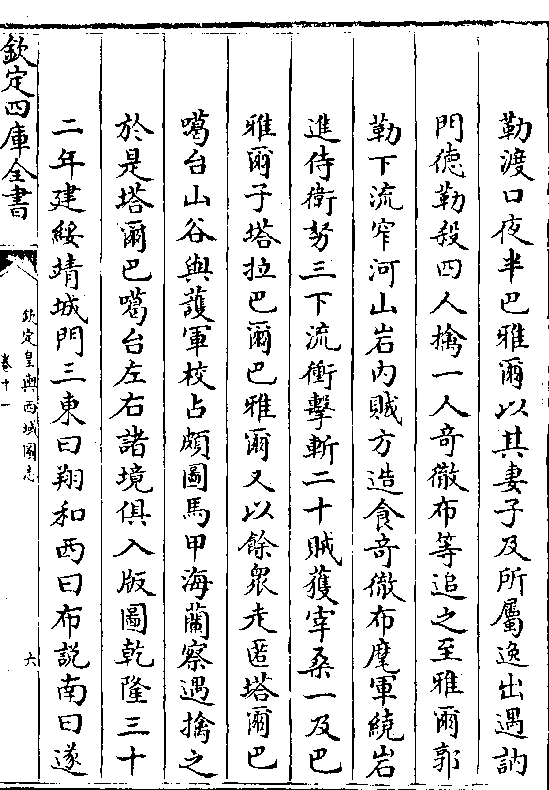 勒渡口夜半巴雅爾以其妻子及所屬逸出遇訥
門德勒殺四人擒一人竒徹布等追之至雅爾郭
勒下流窄河山岩内賊方造食竒徹布麾軍繞岩
進侍衛努三下流衝擊斬二十賊獲宰桑一及巴
雅爾子塔拉巴爾巴雅爾又以餘衆走匿塔爾巴
噶台山谷與護軍校占頗圖馬甲海蘭察遇擒之
於是塔爾巴噶台左右諸境俱入版圖乾隆三十
二年建綏靖城門三東曰翔和西曰布説南曰遂
欽定四庫全書
欽定皇輿西域圖志
卷十一
六